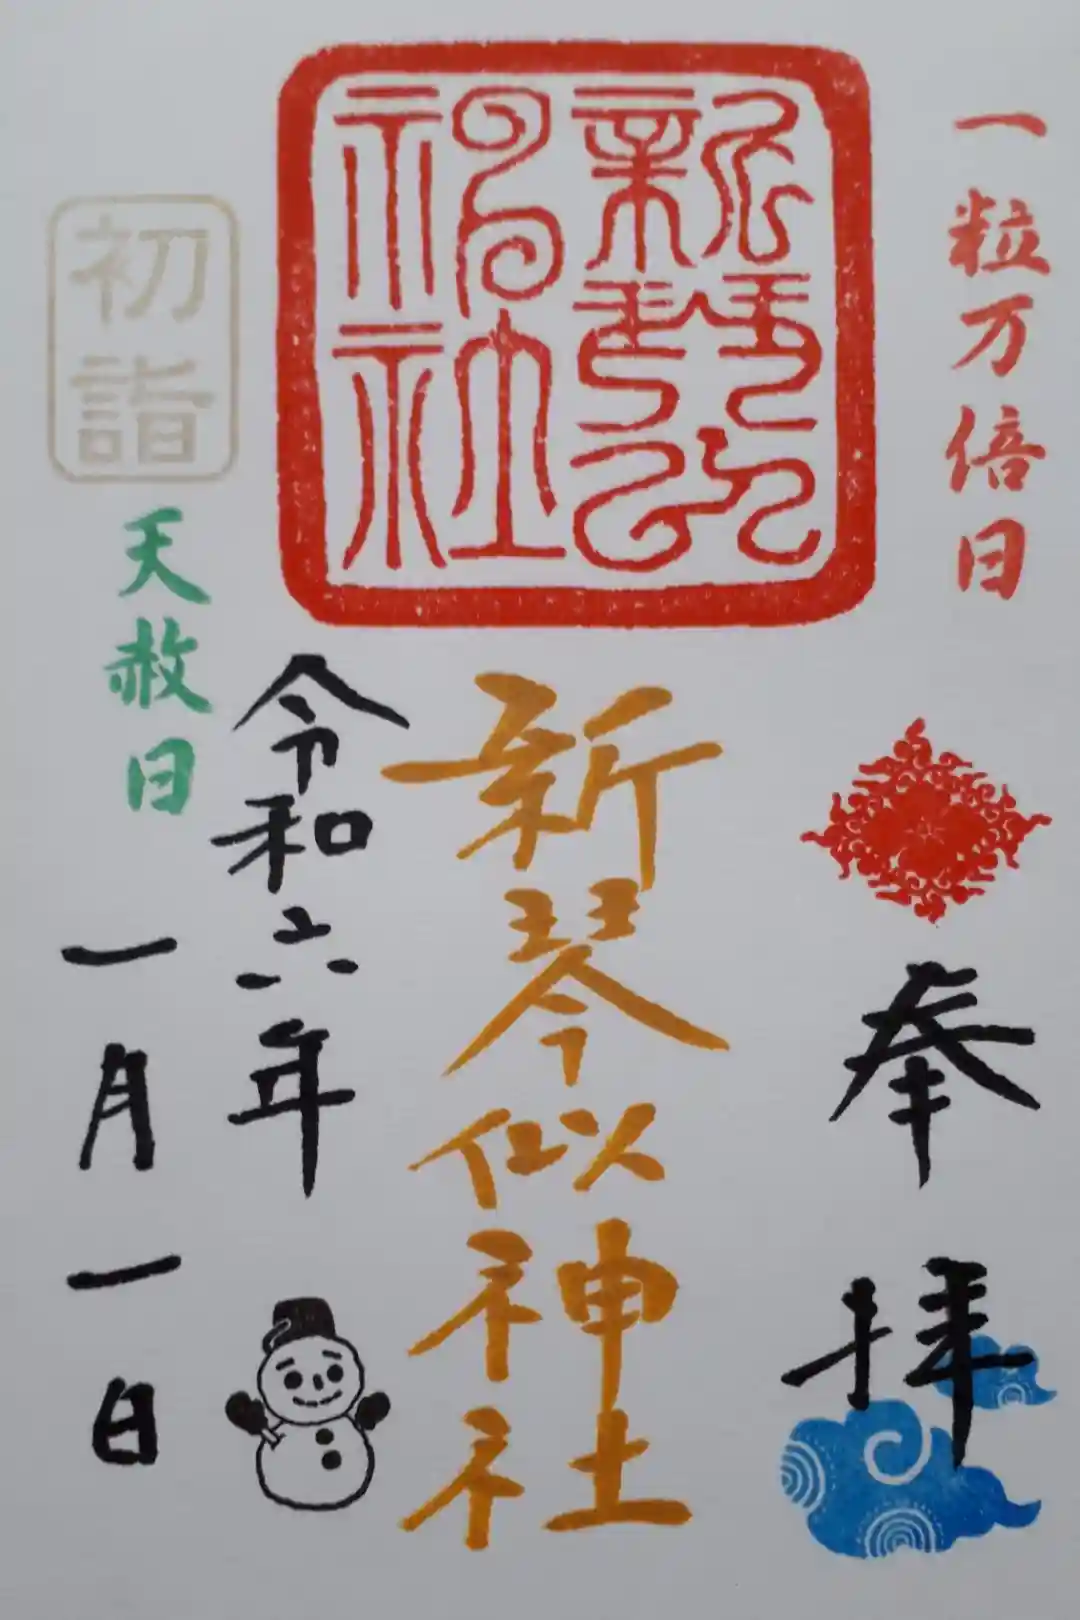 一粒万倍日
奉拝
新琴似神社
新琴似神社
令和六年
一月一日
初詣
天赦日